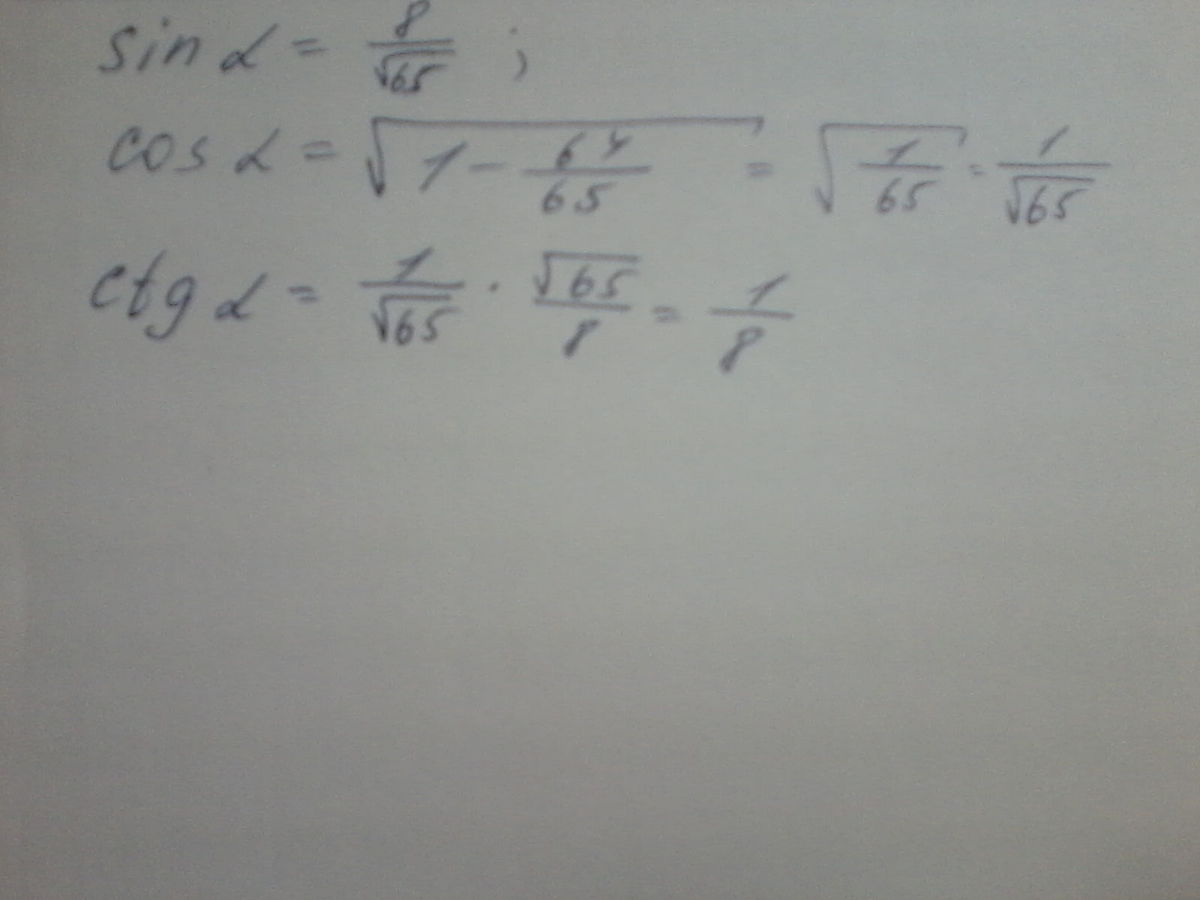 sin α = 8/√65 ;
cos α = √(1 - 64/65) = √(1/65) = 1/√65
ctg α = 1/√65 · √65/8 = 1/8